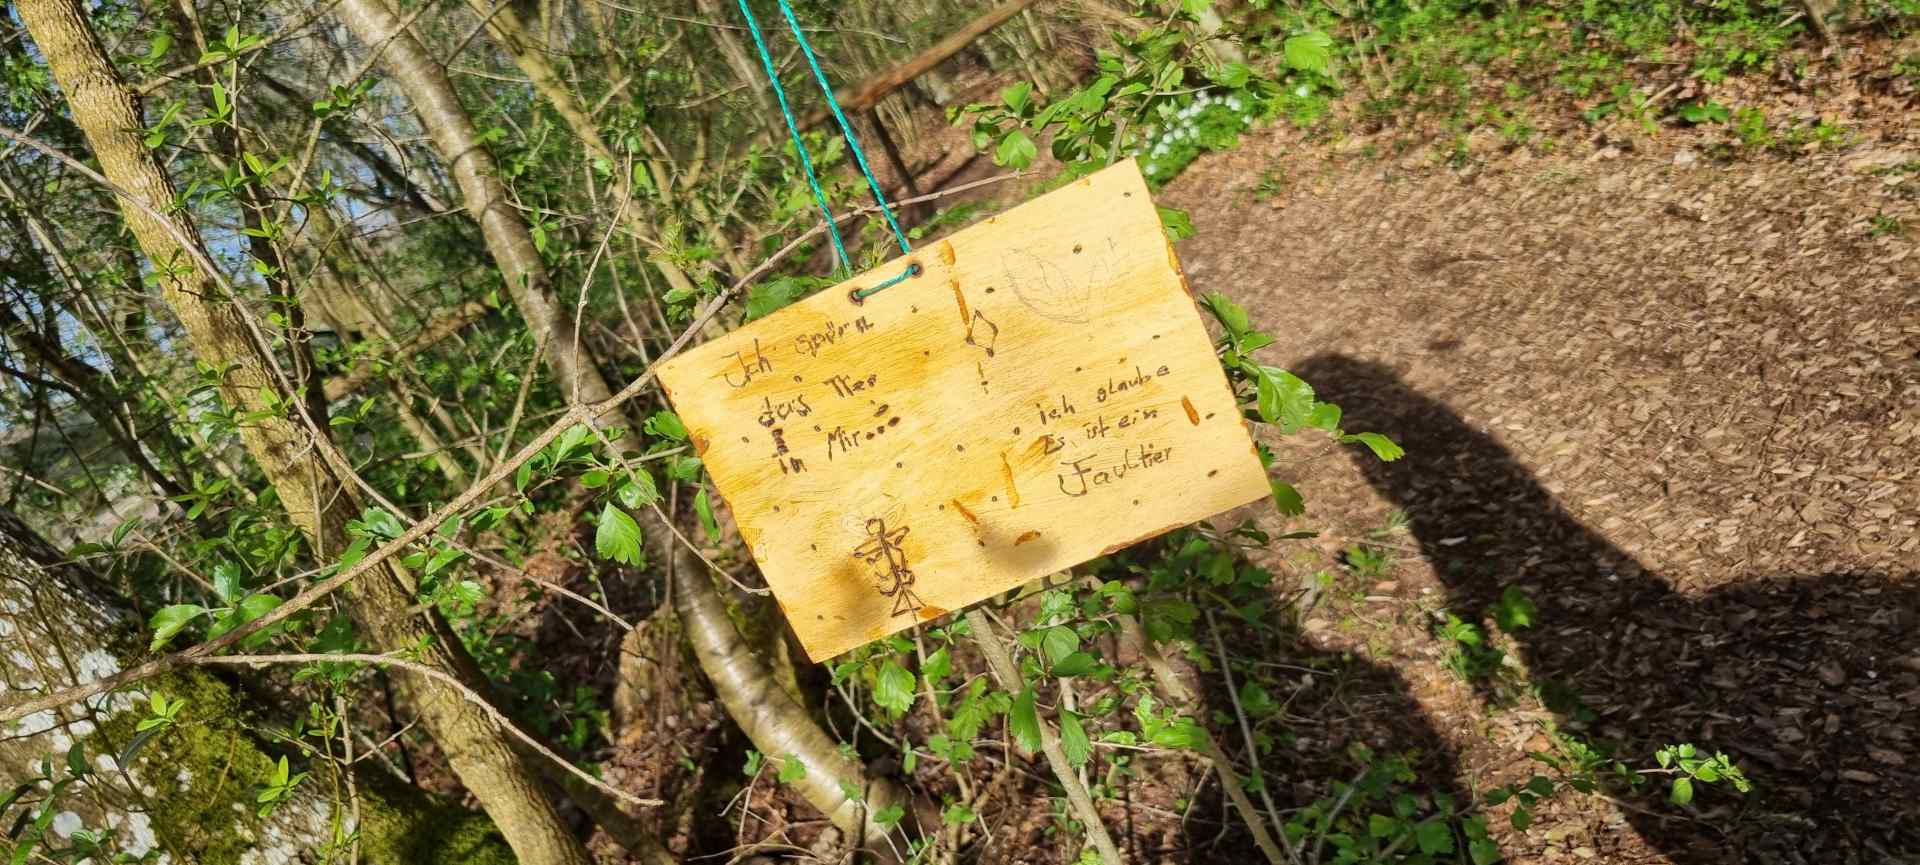 Ich spüre
das Tier
in Mir...
ich glaube
Es ist ein
Faultier